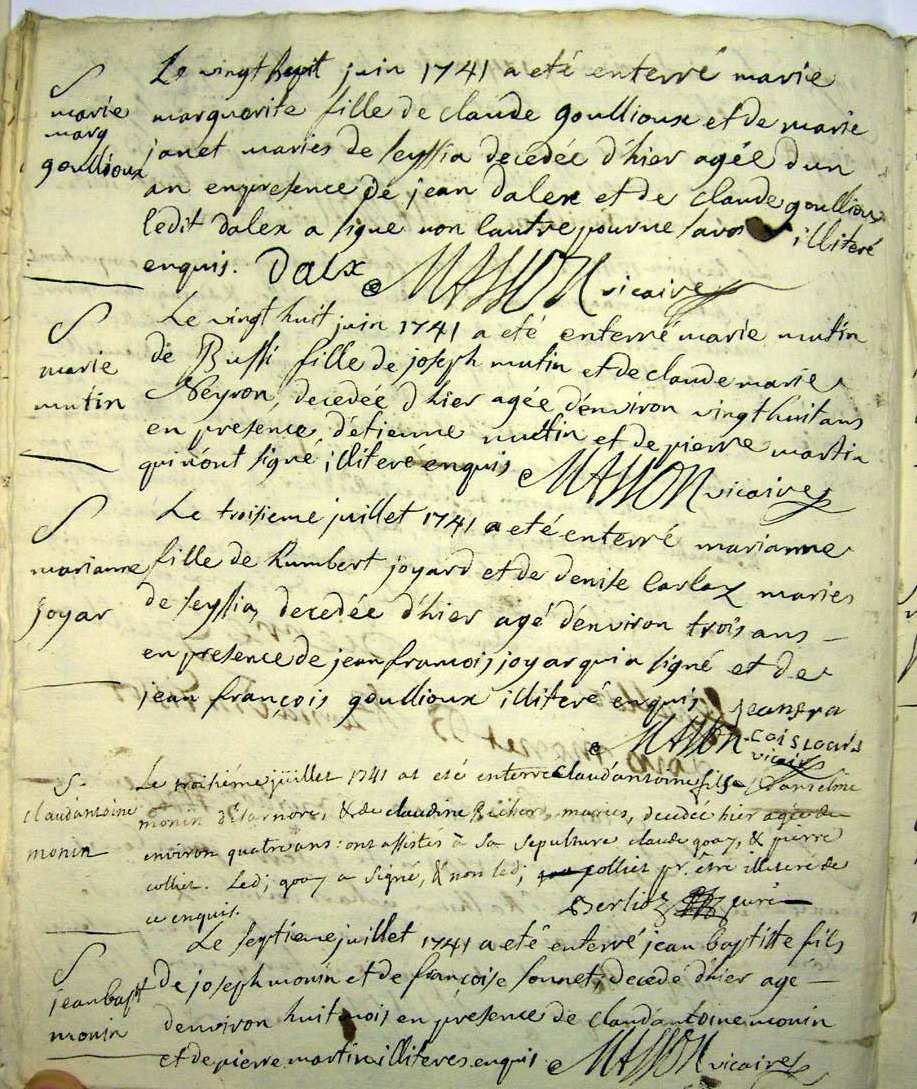 S
marie
marg
goullioux
Le vingt sept juin 1741 a eté enterré marie
marguerite fille de claude goullioux et de marie
janet maries de seyssia decedée d'hier agée d'un
an en presence de jean dalex et de claude goullioux
ledit dalex a signe non lautre pour ne savoir illiteré
enquis. Dalx MASSON vicaire
S
marie
mutin
Le vingt huit juin 1741 a eté enterré marie mutin
de Bussi fille de joseph mutin et de claude marie
Neyron, decedée d'hier agée d'énviron vingt huit ans
en presence d'etienne mutin et de pierre martin
qui n'ont signé illiteré enquis MASSON vicaire
S
marianne
joyar
Le troisieme juillet 1741 a eté enterré marianne
fille de humbert joyard et de denise Carlax maries
de seyssia, decedée d'hier agé d'énviron trois ans
en presence de jean francois joyar qui a signé et de
jean françois goullioux illiteré enquis jeanfra
MASSON
vicaire
S.
Claud'antoine
monin
Le troisiéme juillet 1741 at eté enterré claud'antoine fils d'anselme
monin d'Éarnore, & de claudine maries, decedée hier agée de
environ quatre ans: ont assistés à sa sepulture claude goay, & pierre
collier. Led; goay a signé, & non led; collier pr. être illiteré de
ce enquis. Berlioz curé
S
jean bapt
monin
Le septieme juillet 1741 a eté enterré jean baptiste fils
de joseph monin et de françoise sonnet, decedé d'hier agé
denviron huit mois en presence de claud antoine monin
et de pierre martin illiteres enquis MASSON vicaire